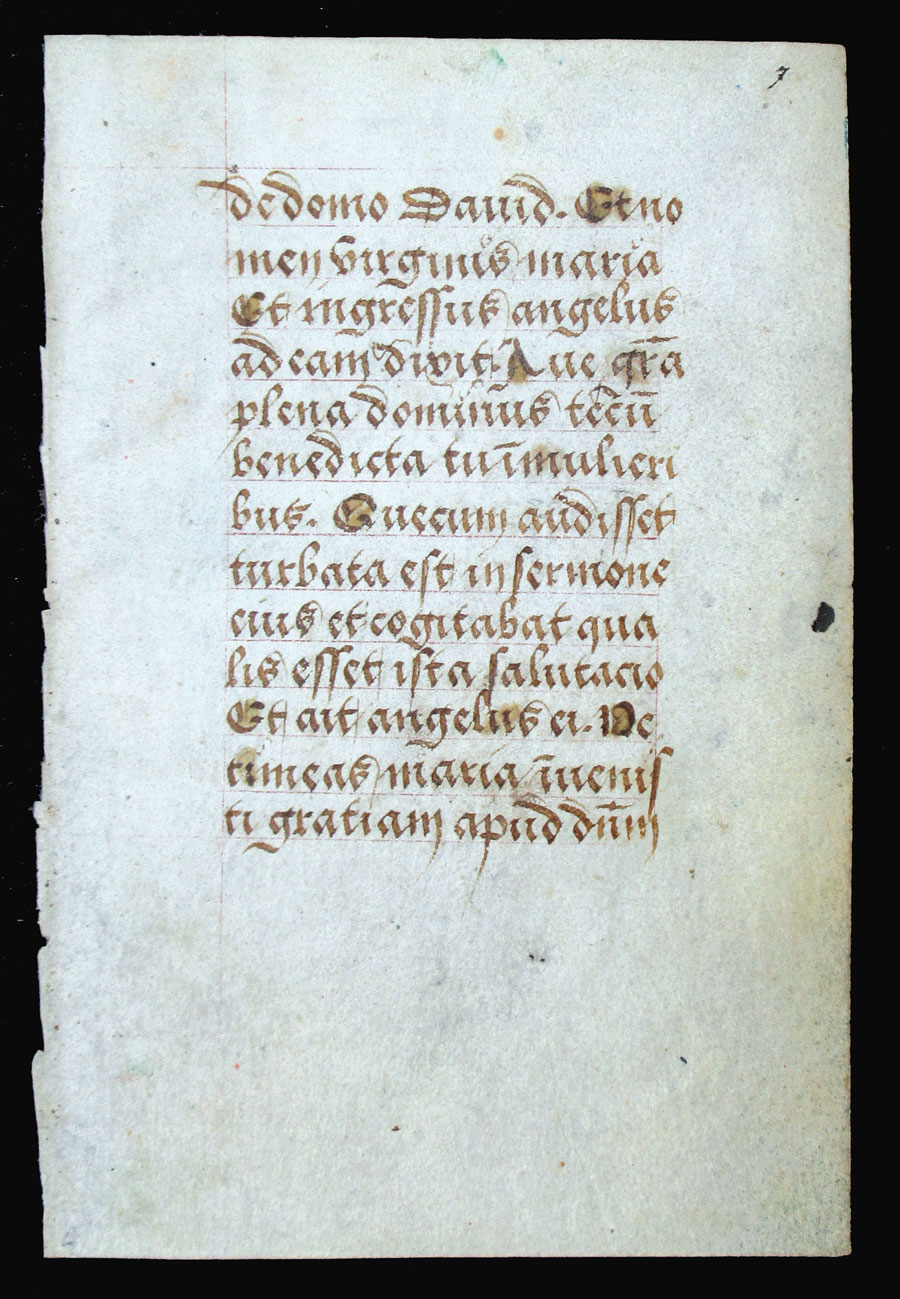 7
de domo Dauid. Et no
men virginis maria
Et ingressus angelus
ad eam dixit. Aue gr̃a
plena dominus tecũ
benedicta tu ĩ mulieri
bus. Que cum audisset
turbata est in sermone
eius et cogitabat qua
lis esset ista salutacio
Et ait angelus ei. Ne
timeas maria ĩuenis
ti gratiam apud dñm